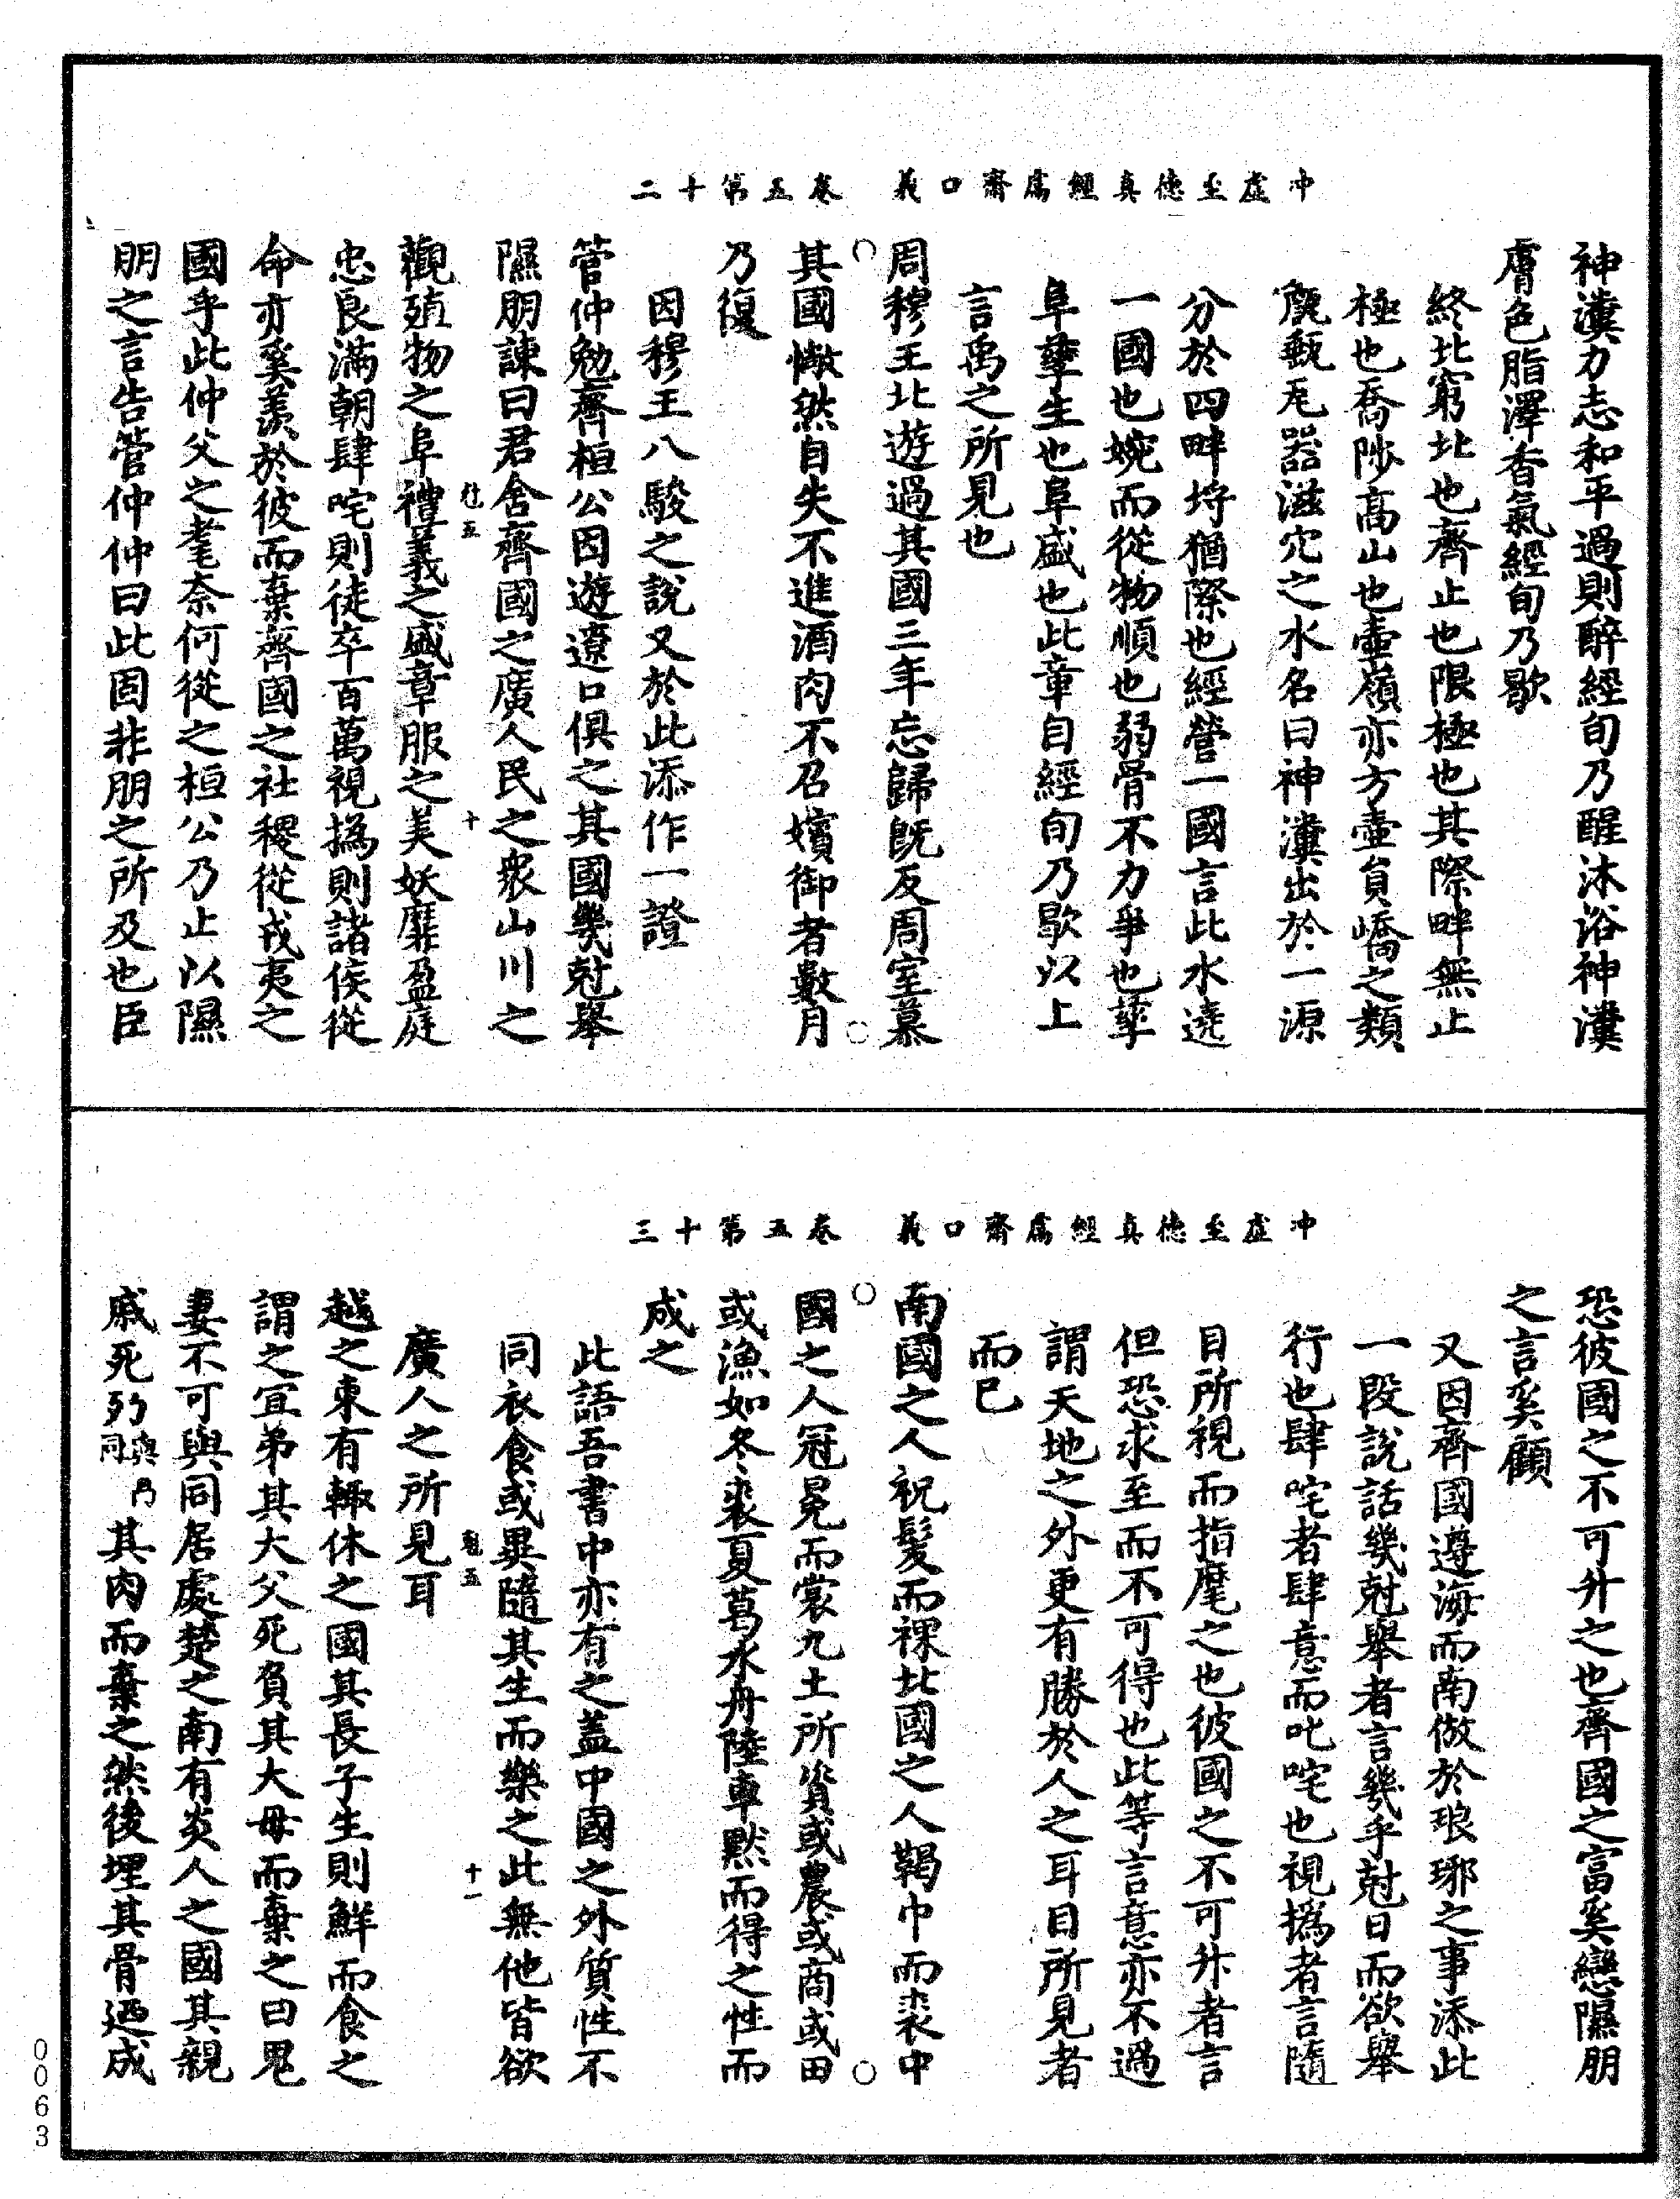 冲虛至德真經鬳齋口義　卷五第十二
神瀵力志和平過則醉經旬乃醒沐浴神瀵
膚色脂澤香氣經旬乃歇
終北窮北也齊止也限極也其際畔無止
極也喬陟高山也壺嶺亦方壺貟嶠之類
甔甀瓦器滋穴之水名曰神瀵出於一源
分於四畔埒猶際也經營一國言此水遶
一國也婉而從物順也弱骨不力爭也孳
阜孳生也阜盛也此章自經旬乃歇以上
言禹之所見也
周穆王北遊過其國三年忘歸旣反周室慕
其國惝然自失不進酒肉不召嬪御者數月
乃復
因穆王八駿之說又於此添作一證
管仲勉齊桓公因遊遼口俱之其國幾尅舉
隰朋諫曰君舍齊國之廣人民之衆山川之
觀殖物之阜禮義之盛章服之美妖靡盈庭
忠良滿朝肆咤則徒卒百萬視撝則諸侯從
命亦奚羡於彼而棄齊國之社稷從戎夷之
國乎此仲父之耄奈何從之桓公乃止以隰
朋之言告管仲仲曰此固非朋之所及也臣
冲虛至德真經鬳齋口義　卷五第十三
恐彼國之不可升之也齊國之富奚戀隰朋
之言奚顧
又因齊國遵海而南倣於琅琊之事添此
一段說話幾尅舉者言幾乎尅日而欲舉
行也肆咤者肆意而叱咤也視撝者言隨
目所視而指麾之也彼國之不可升者言
但恐求至而不可得也此等言意亦不過
謂天地之外更有勝於人之耳目所見者
而已
南國之人祝髮而裸北國之人鞨巾而裘中
國之人冠冕而裳九土所資或農或商或田
或漁如冬裘夏葛水舟陸車默而得之性而
成之
此語吾書中亦有之蓋中國之外質性不
同衣食或異隨其生而樂之此無他皆欲
廣人之所見耳
越之東有輒休之國其長子生則鮮而食之
謂之宜弟其大父死負其大母而棄之曰鬼
妻不可與同居處楚之南有炎人之國其親
戚死㱙與冎同其肉而棄之然後埋其骨迺成
0063